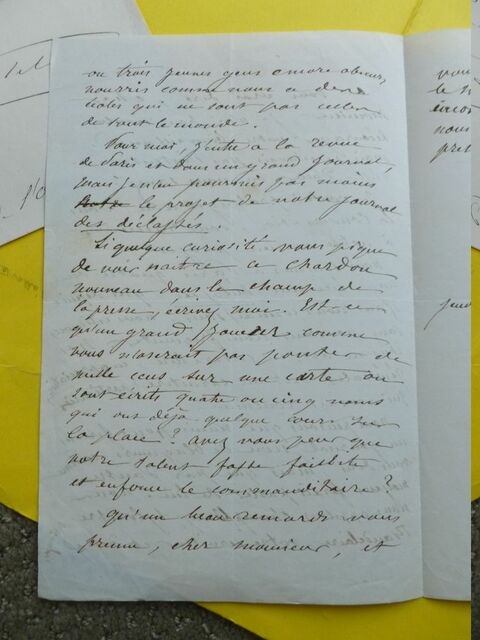 ou trois jeunes gens encore obscurs,
nourris comme nous d
idées qui ne sont pas celles
de tout le monde.
Pour moi, j'entre à la revue
de Paris et dans un grand journal,
mais je n'en poursuis pas moins
le projet de notre journal
des déclassés.
Si quelque curiosité vous pique
de voir naitre ce chardon
nouveau dans le champ de
la presse, écrivez moi. Est ce
qu'un grand joueur comme
vous n'oserait pas ponter de
mille ecus sur une carte ou
sont ecrits quatre ou cinq noms
qui ont déjà quelque cours sur
la place? avez vous peur que
notre talent fasse faillite
et enfonce le commanditaire?
qu'un beau remords vous
prenne, cher monsieur, et
vous
nous